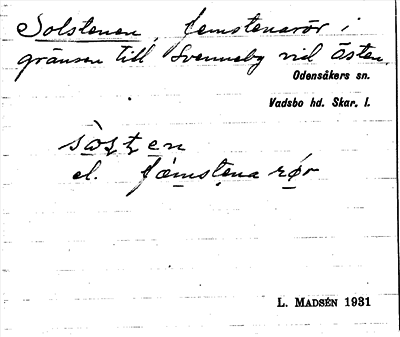 Solstenen, femstenarör i
gränsen till Svenneby vid Östen.
Odensåkers sn.
Vadsbo hd. Skar. l.
el. fæmstena rør
L. MADSÉN 1931